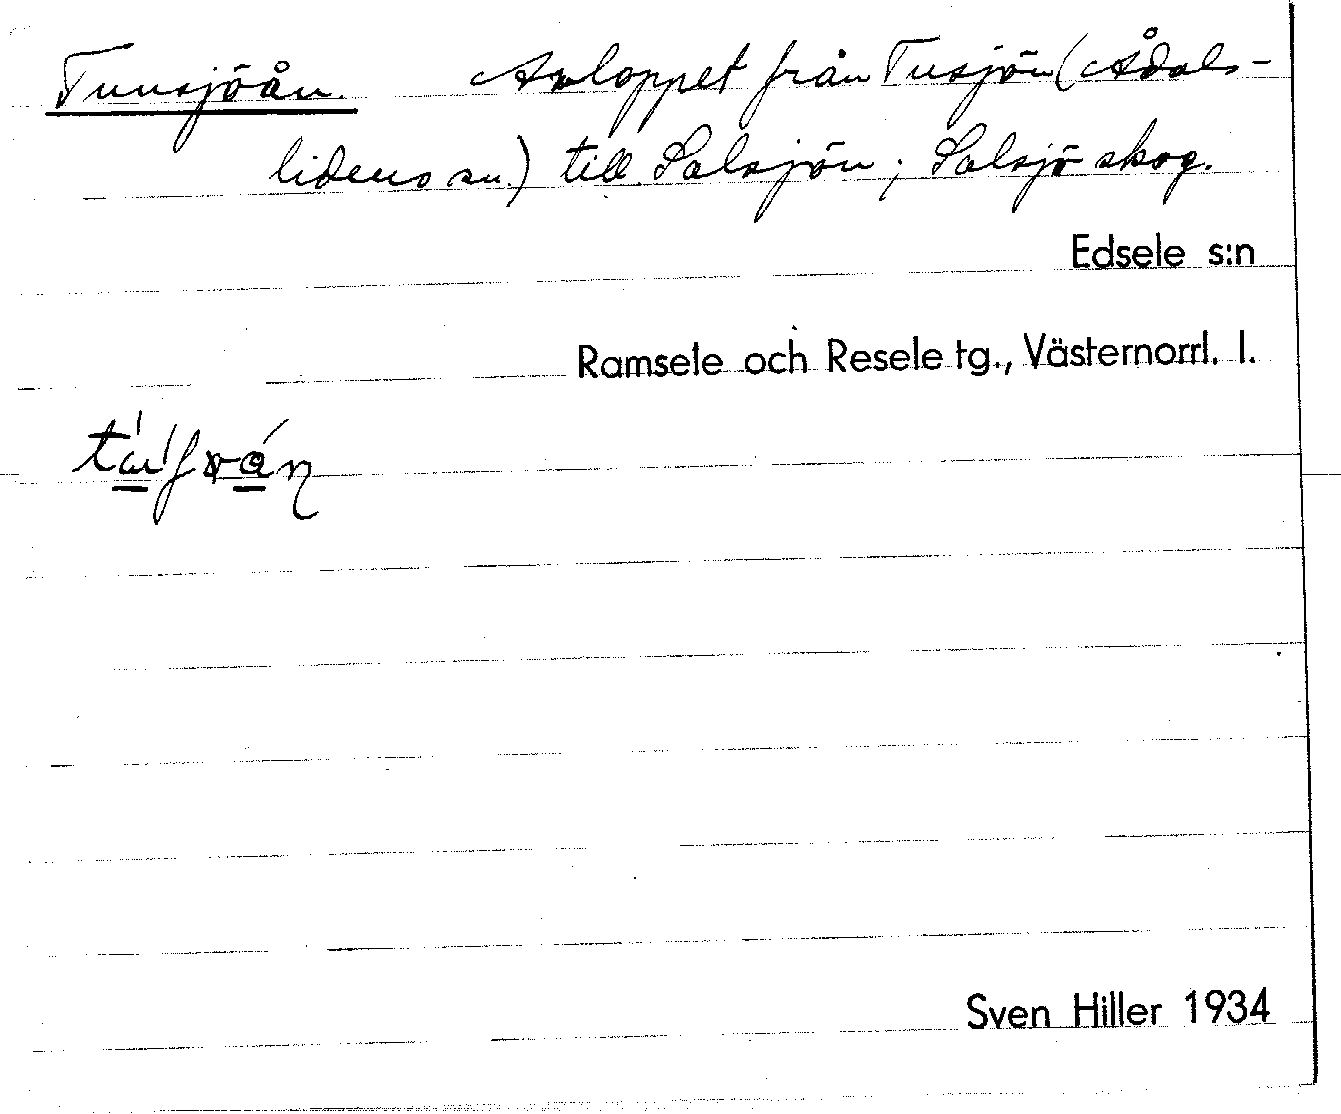 Tunsjöån. Avloppet från Tusjön (Ådals-
lidens sn.) till Salsjön; Salsjö skog.
Edsele s:n
Ramsele och Resele tg., Västernorrl. l.
Sven Hiller 1934